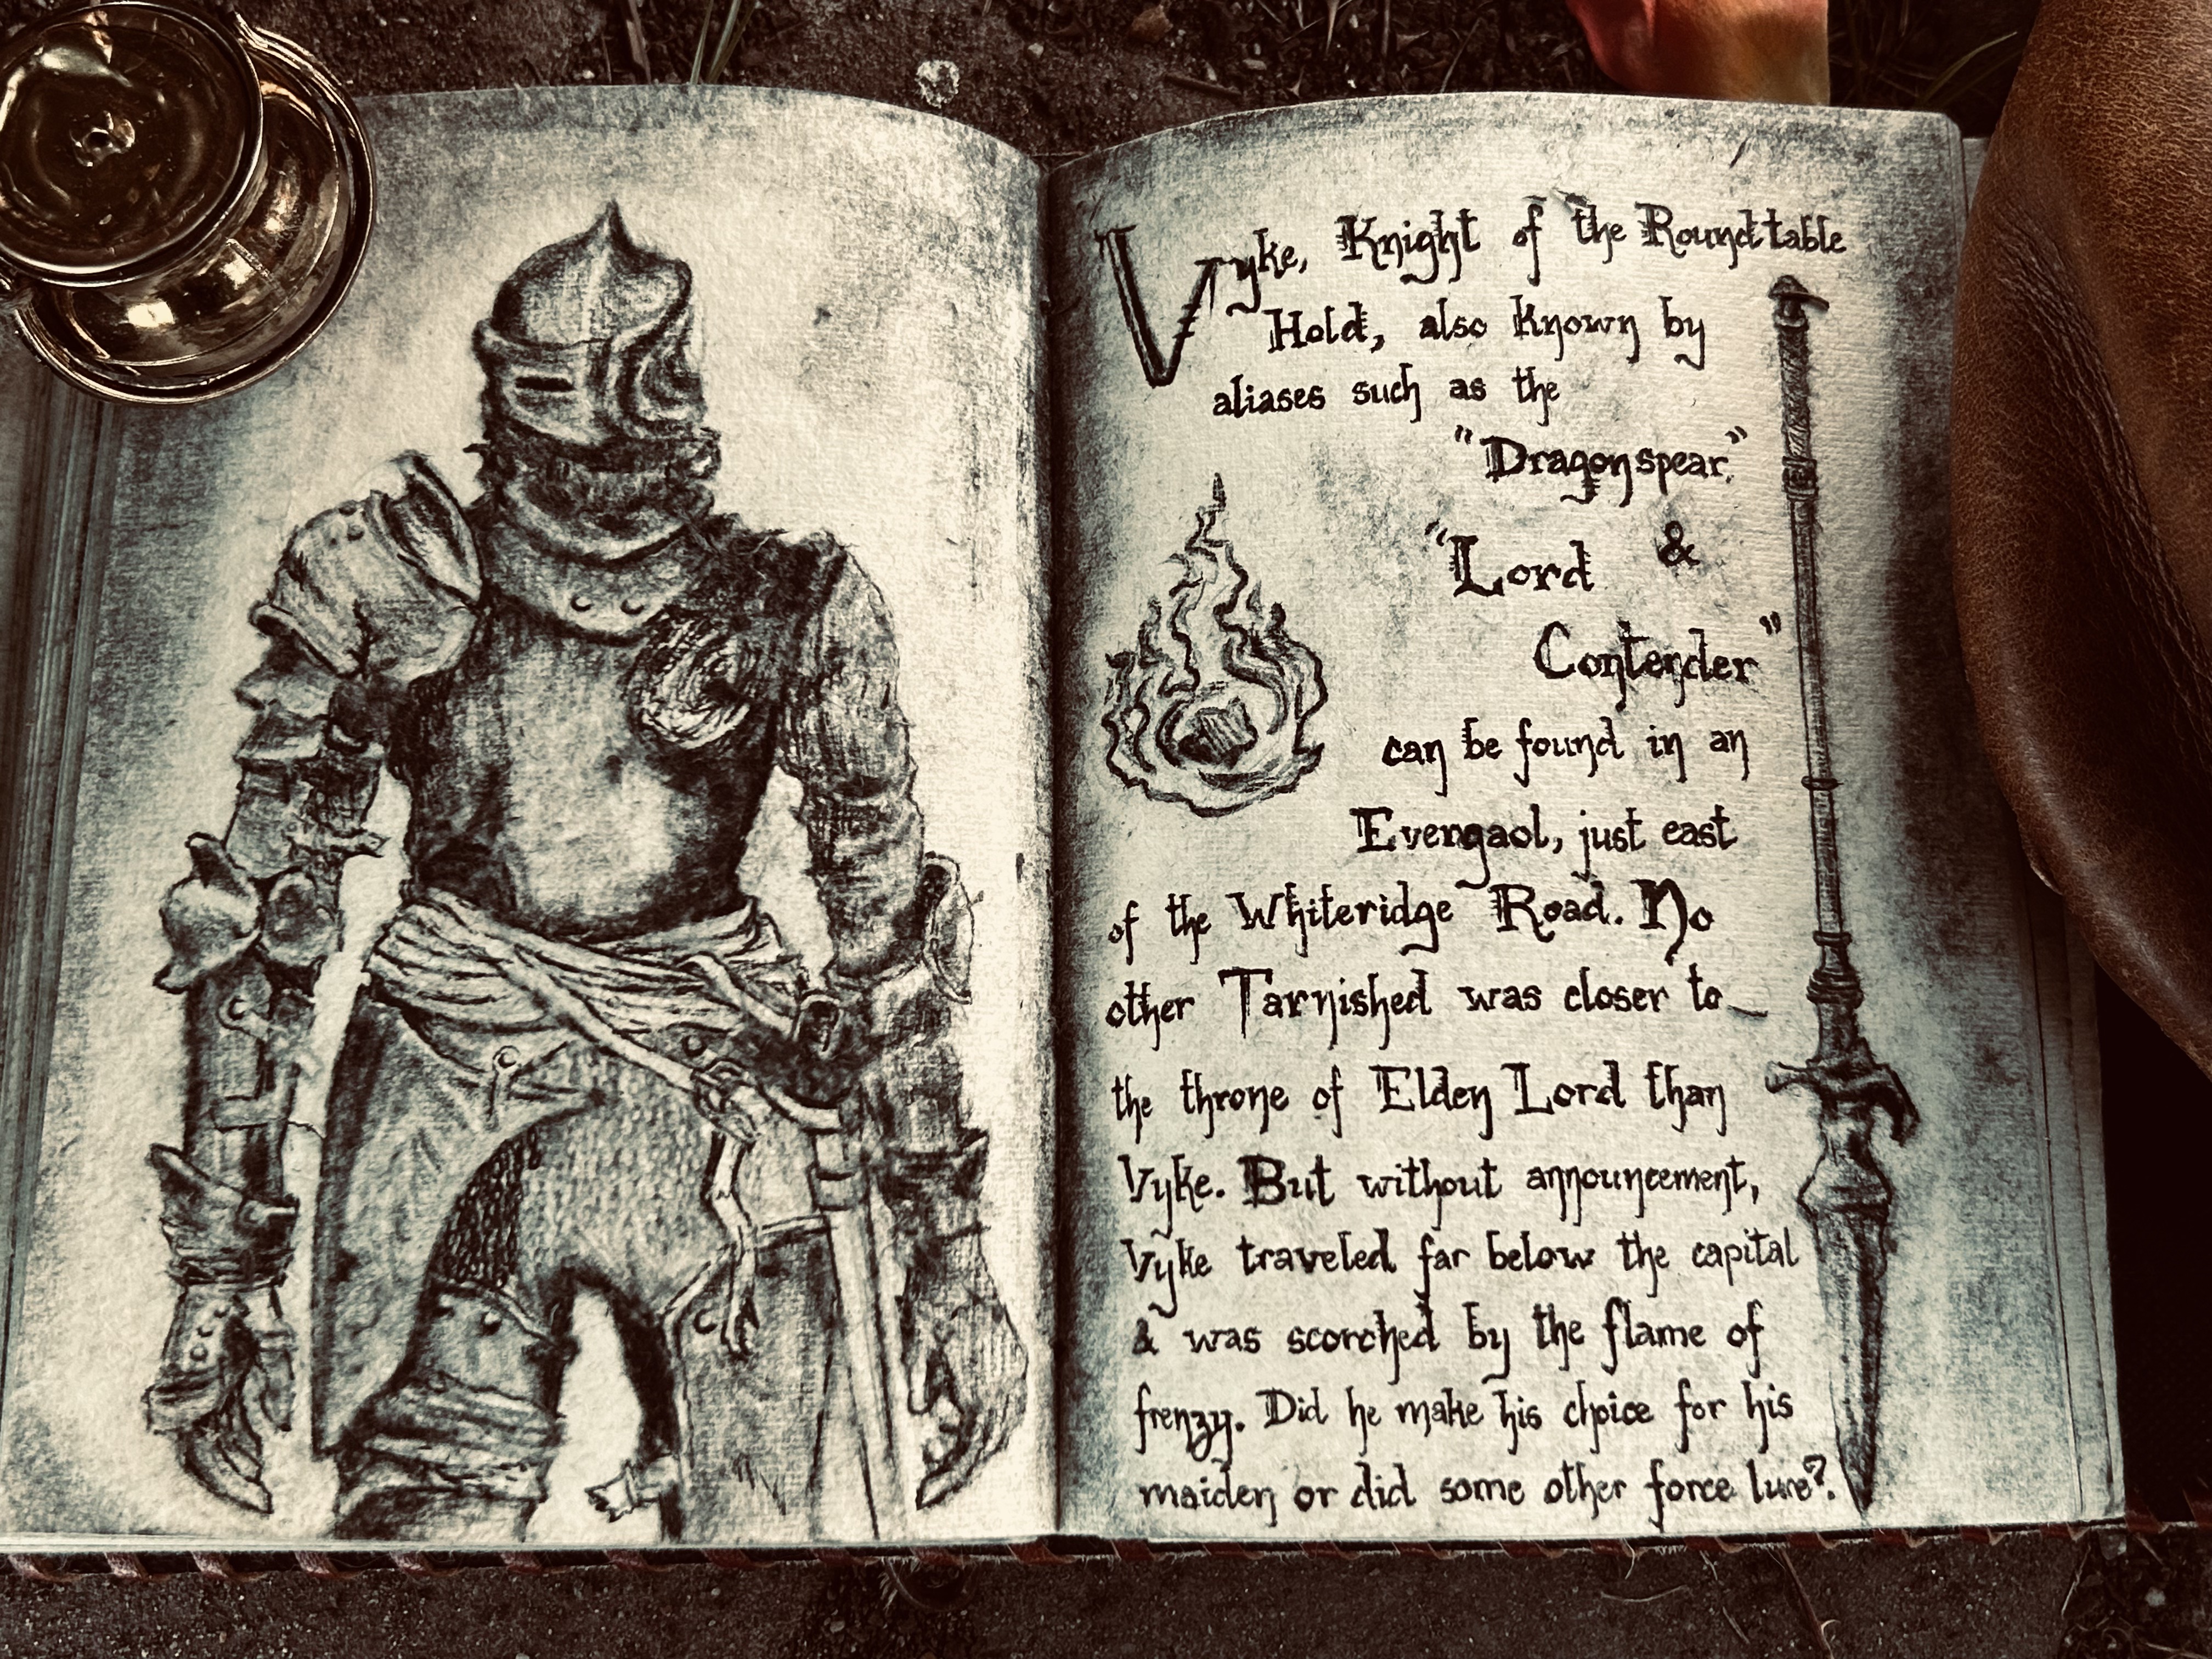 Vyke, Knight of the Roundtable
Hold, also known by
aliases such as the
"Dragonspear"
&
"Lord
Contender"
can be found in an
Evengaol, just east
of the Whiteridge Road. No
other Tarnished was closer to
the throne of Elden Lord than
Vyke. But without announcement,
Vyke traveled far below the capital
& was scorched by the flame of
frenzy. Did he make his choice for his
maiden or did some other force lure?